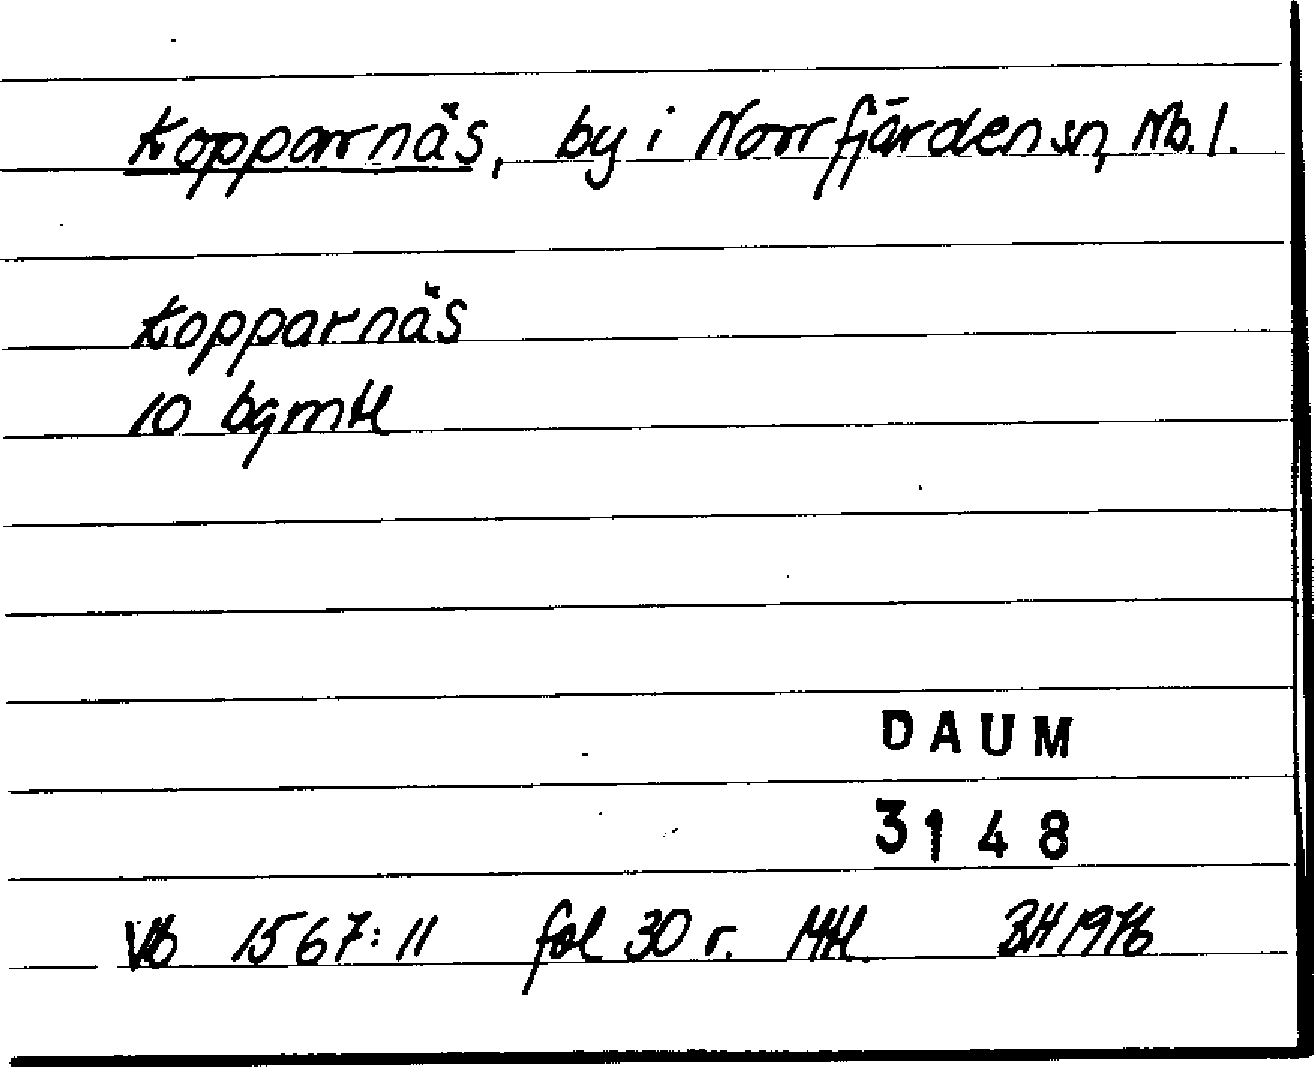 Kopparnäs, by i Norrfjärden sn, Nb. l.
Kopparnäs
10 bgmtl
DAUM
3148
Vb 1567:11 fol 30 r. Mtl BH 1976